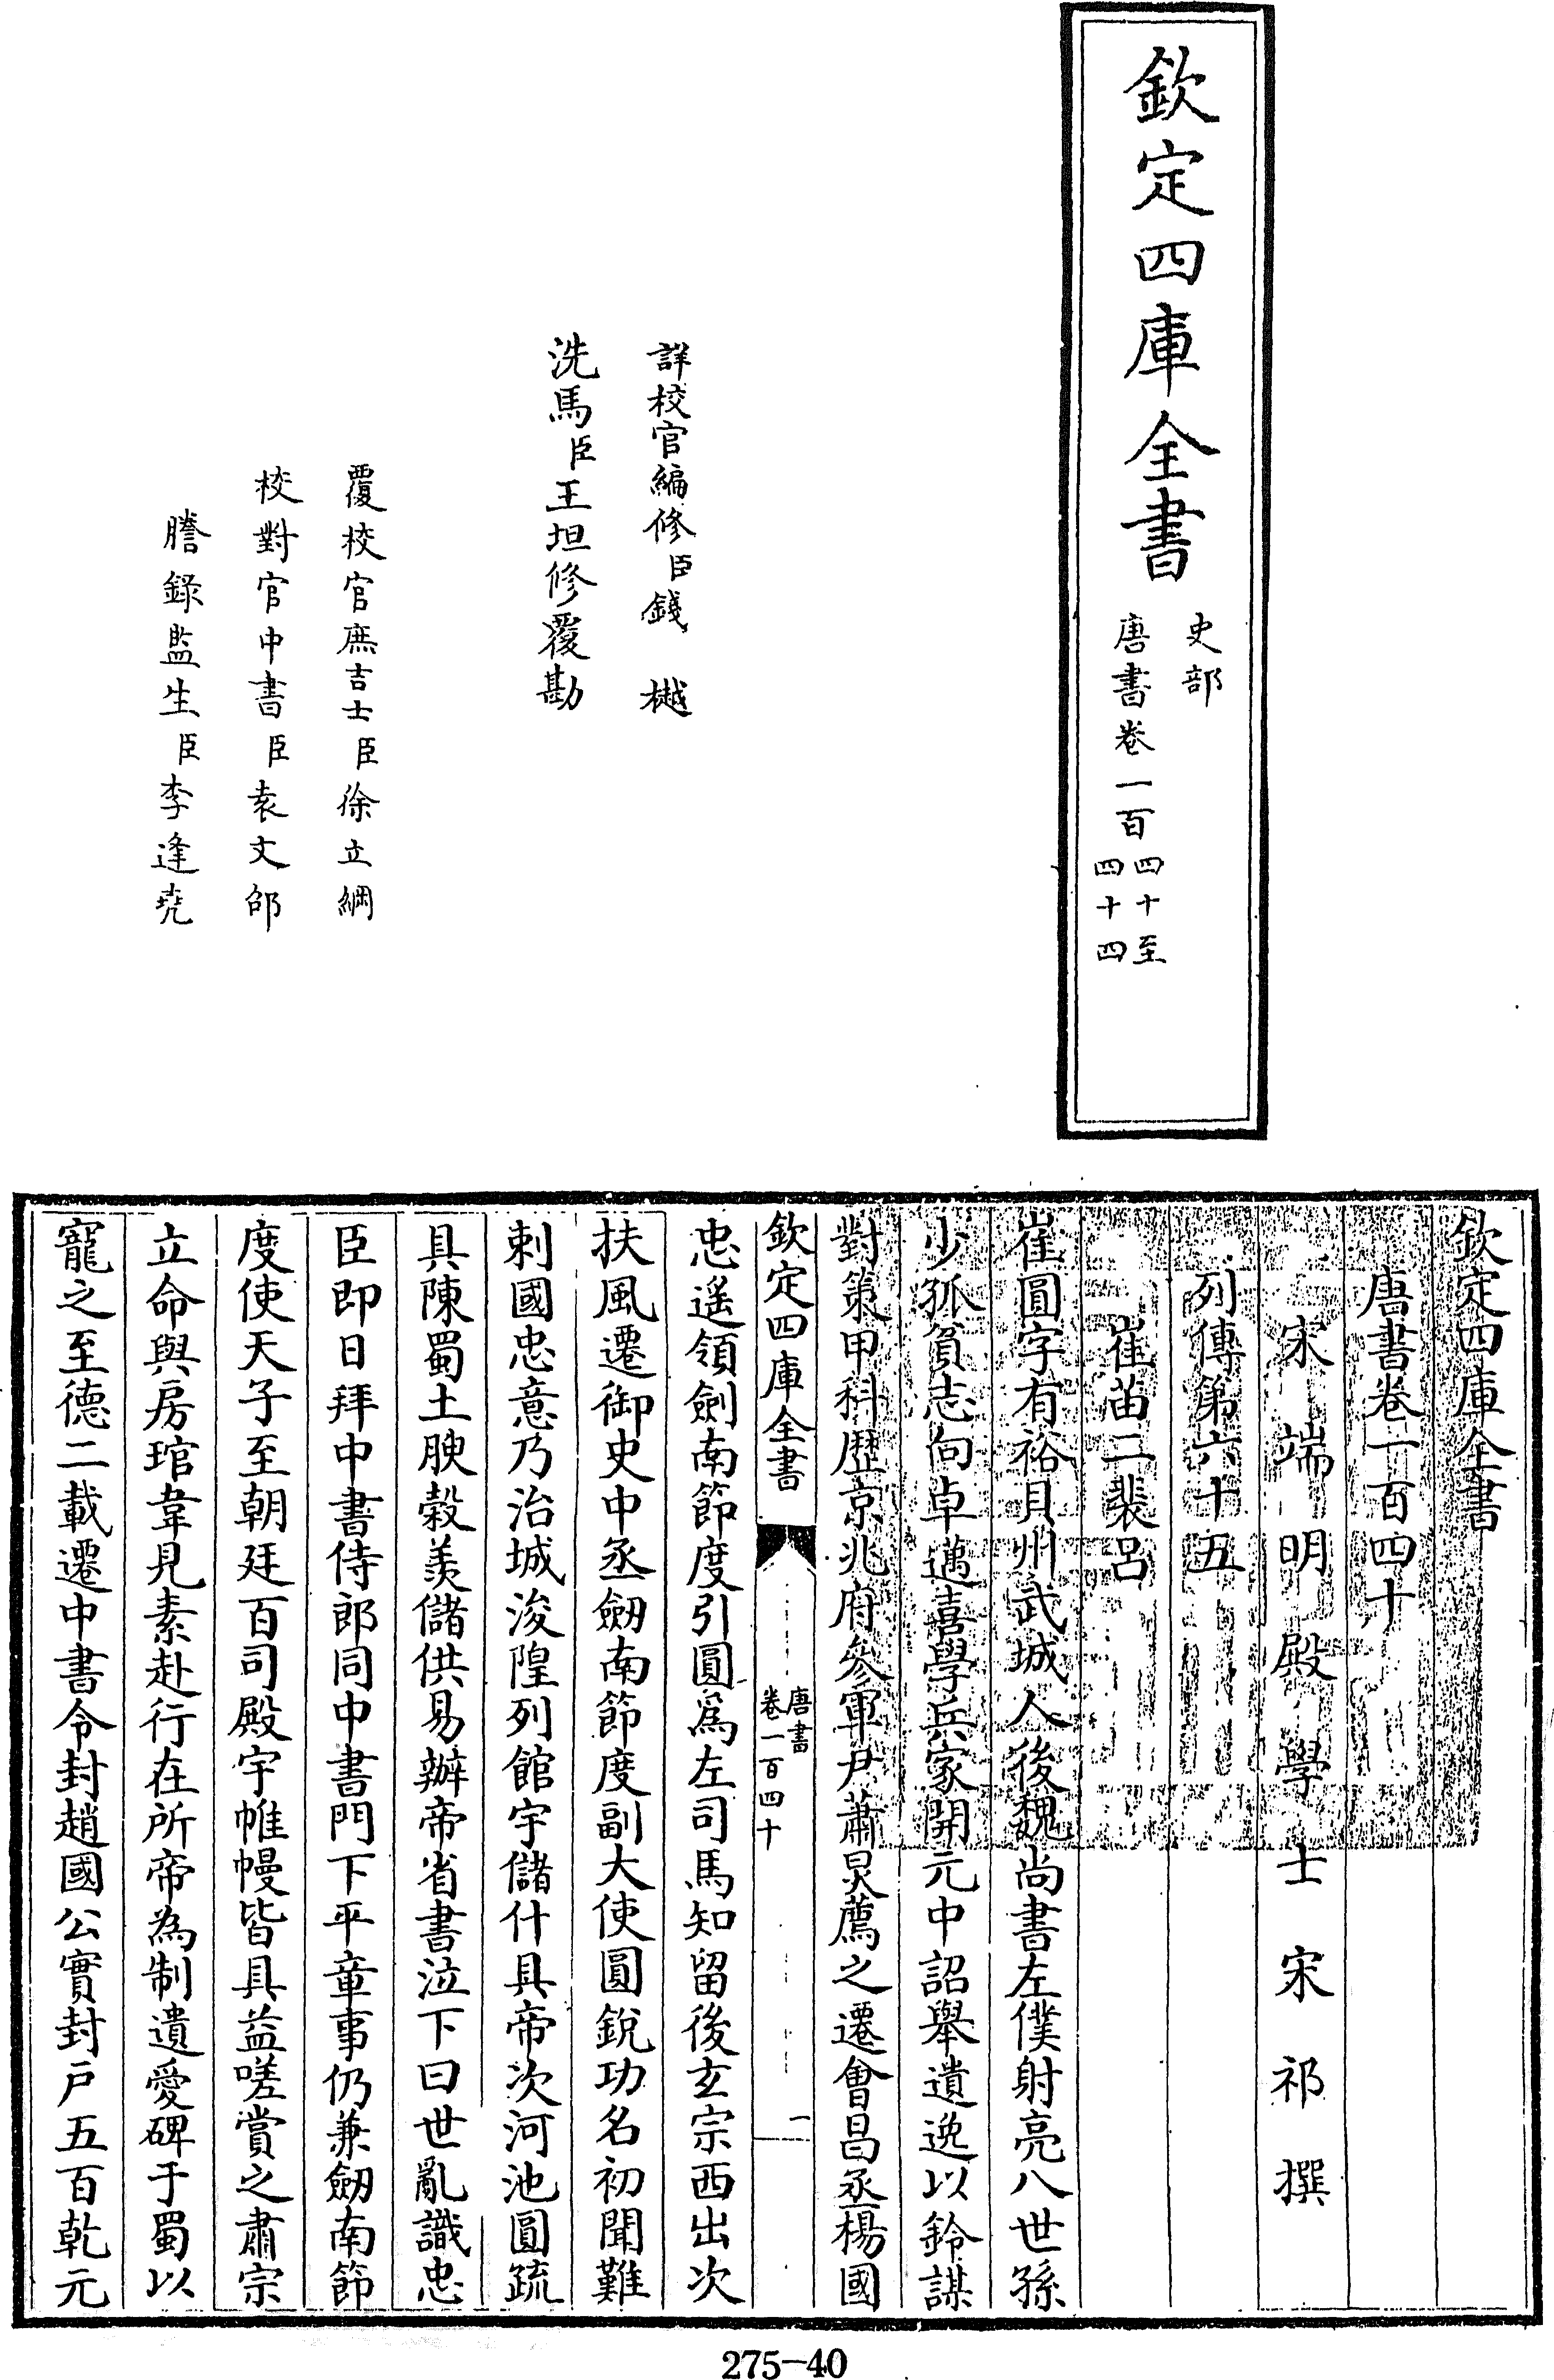 欽定四庫全書
史部
唐書卷一百四十至
四十四
詳校官編修臣錢樾
洗馬臣王坦修覆勘
覆校官庶吉士臣徐立綱
校對官中書臣袁文邵
謄錄監生臣李逢堯
欽定四庫全書
唐書卷一百四十
宋端明殿學士宋祁撰
列傳第六十五
崔苗二裴呂
崔圓字有裕貝州武城人後魏尚書左僕射亮八世孫
少孤貧志向卓邁喜學兵家開元中詔舉遺逸以鈐謀
對策甲科歴京兆府參軍尹蕭炅薦之遷會昌丞楊國
欽定四庫全書
唐書
卷一百四十
一
忠遙領劍南節度引圓爲左司馬知留後玄宗西出次
扶風遷御史中丞劒南節度副大使圓銳功名初聞難
刺國忠意乃治城浚隍列館宇儲什具帝次河池圓疏
具陳蜀土腴穀羨儲供易辦帝省書泣下曰世亂識忠
臣即日拜中書侍郎同中書門下平章事仍兼劒南節
度使天子至朝廷百司殿宇帷幔皆具益嗟賞之肅宗
立命與房琯韋見素赴行在所帝為制遺愛碑于蜀以
寵之至德二載遷中書令封趙國公實封戶五百乾元
275-40